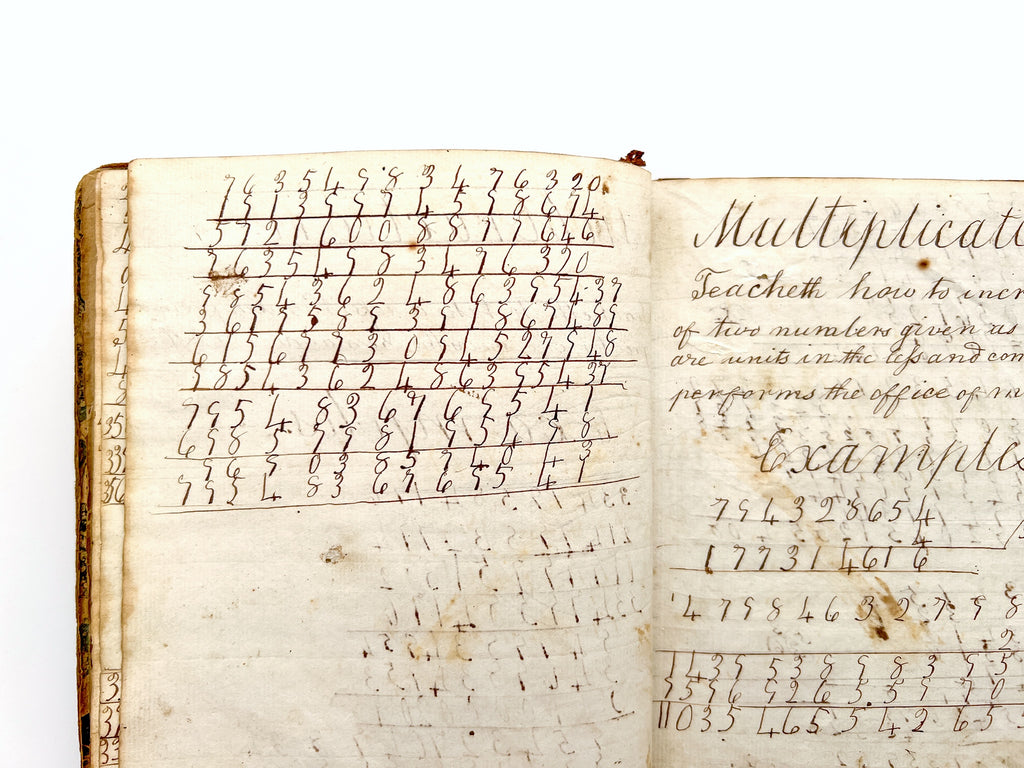 7 6 3 5 4 9 8 3 4 7 6 3 2 0
1 9 1 3 8 9 7 4 5 9 8 6 7 4
5 7 2 1 6 0 0 8 8 7 7 6 4 6
7 6 3 5 4 9 8 3 4 7 6 3 2 0
9 8 5 4 3 6 2 4 8 6 3 9 5 4 3 7
3 6 9 7 5 8 9 3 9 1 8 6 7 4 8 9
6 1 5 6 7 7 3 0 9 4 5 2 7 9 4 8
9 8 5 4 3 6 2 4 8 6 3 9 5 4 3 7
7 9 5 4 8 3 6 7 6 9 5 4 1
6 9 8 5 7 9 8 1 9 5 4 9 8
9 6 9 0 3 8 5 7 4 0 4 3
7 9 5 4 8 3 6 7 6 9 5 4 1
Multiplicati
Teacheth how to incr
of two numbers given as
are units in the less and com
performs the office of m
Examples
7 9 4 3 2 8 6 5 4
4
1 7 7 3 1 4 6 1 6
4 7 9 8 4 6 3 2 7 9 8
2
1 4 3 9 5 3 8 9 8 3 9 5
9 5 9 6 9 2 6 5 5 9 7 0
1 1 0 3 5 4 6 5 5 4 2 6 5